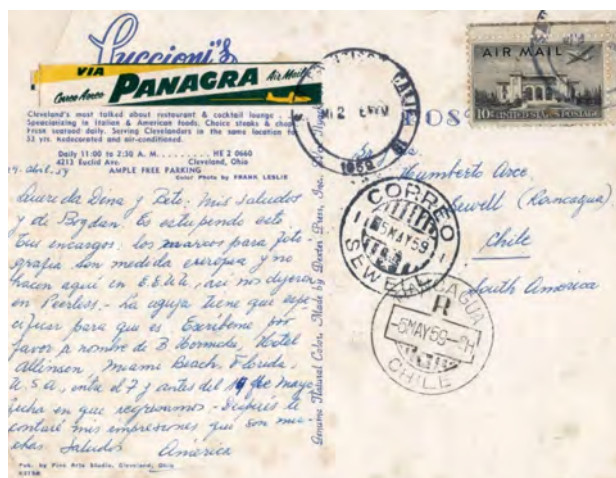 Puccioni's
VIA
PANAGRA
Correo Aereo
Air Mail
Cleveland's most talked about restaurant & cocktail lounge
Specializing in Italian & American foods. Choice steaks & chops
Fresh seafood daily. Serving Clevelanders in the same location for
33 yrs. Redecorated and air-conditioned.
Daily 11:00 to 2:30 A. M. HE 2 0660
4213 Euclid Ave. Cleveland, Ohio
AMPLE FREE PARKING
Color Photo by FRANK LESLIE
abril. 59
Querida Dina y Beto: mis saludos
y de Bogdan. Es estupendo esto
Tus encargos: los marcos para foto-
grafía son medida europea y no
hacen aquí en E.E.U.U., así nos dijeron
en Peerless.- La aguja tiene que espe-
cificar para que es. Escríbeme por
favor a nombre de B. Hotel
Allinson, Miami Beach, Florida,
U.S.A, entre el 7 y antes del de Mayo
fecha en que regresamos.- Después te
contaré mis impresiones que son mu-
chas Saludos América
Pub. by Fine Arts Studio, Cleveland, Ohio
Genuine Natural Color, Made by Dexter Press, Inc.
CALIF
1959
AIR MAIL
10¢ UNITED STATES POSTAGE
POS
Humberto Arce
Sewell (Rancagua)
Chile
South America
CORREO
5MAY59
SEWELL
RANCAGUA
R
-5MAY59-
CHILE